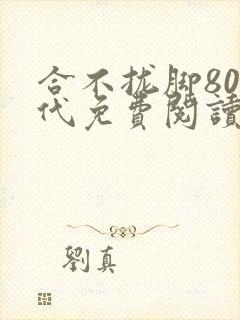 合不拢脚80
代免費閱讀
劉真